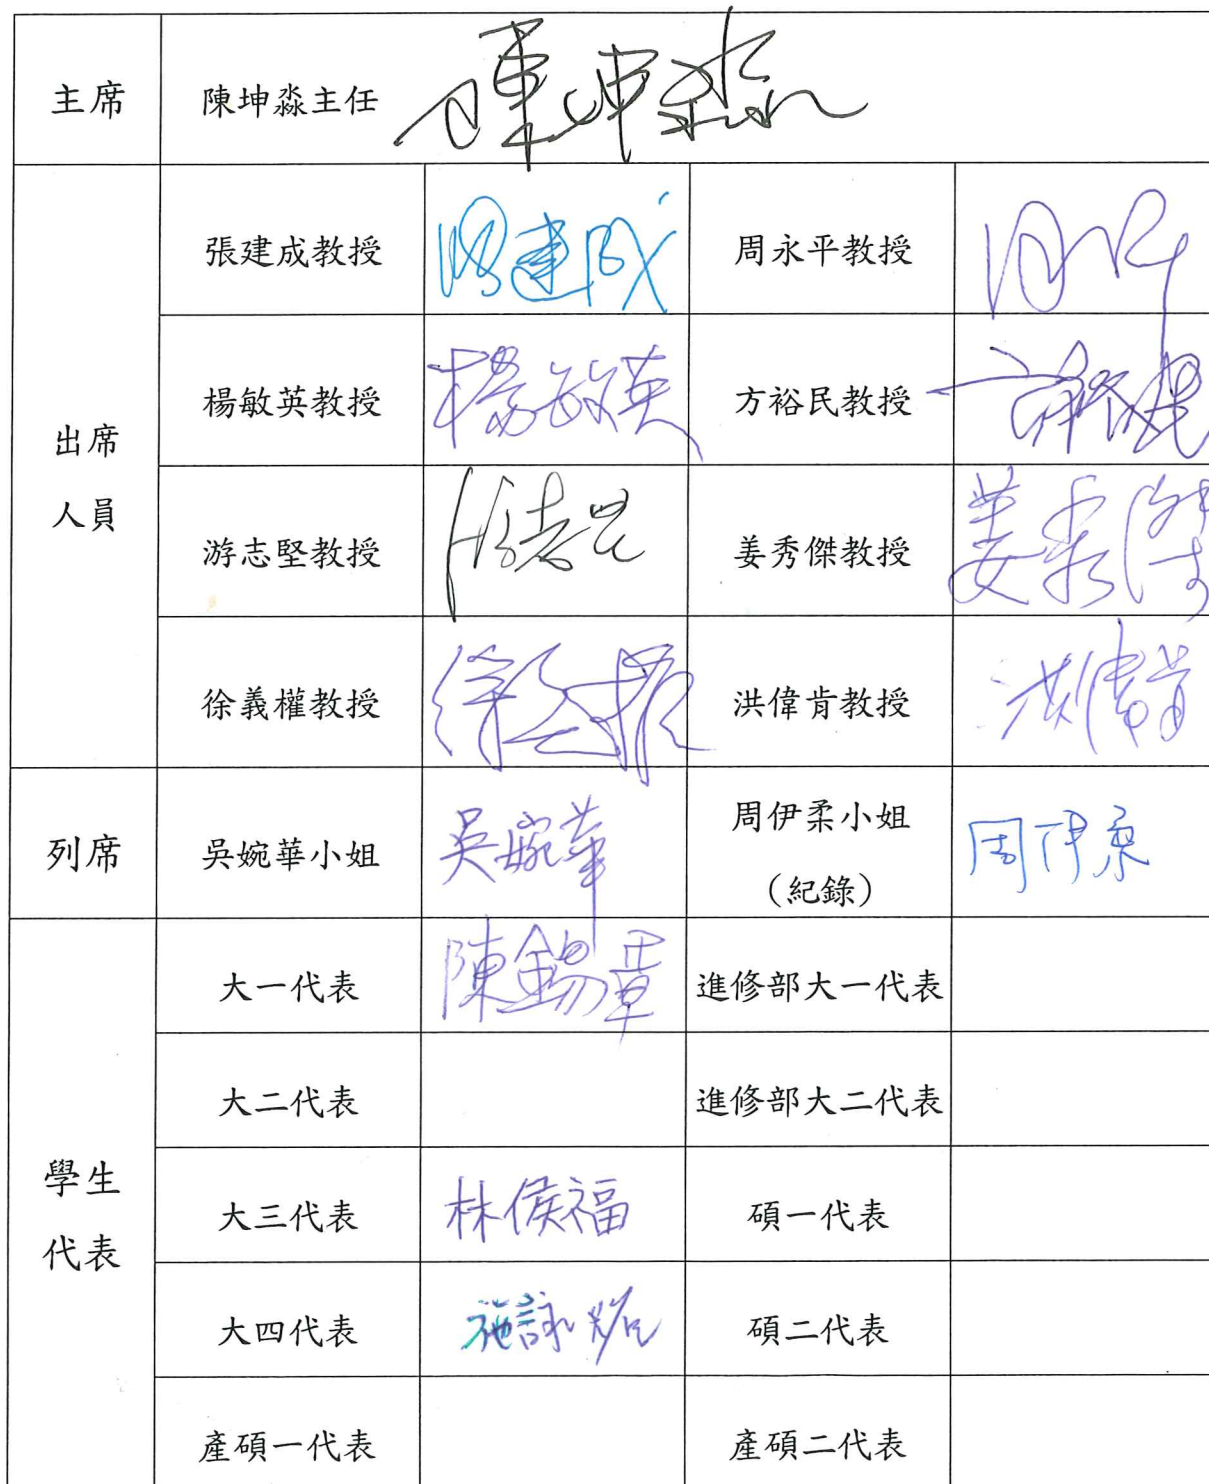 主席 陳坤淼主任 陳坤淼
出席人員
張建成教授 張建成 周永平教授
楊敏英教授 楊敏英 方裕民教授 方裕民
游志堅教授 游志堅 姜秀傑教授 姜秀傑
徐義權教授 徐義權 洪偉肯教授 洪偉肯
列席 吳婉華小姐 吳婉華 周伊柔小姐 周伊柔
(紀錄)
學生代表
大一代表 陳錫章 進修部大一代表
大二代表 進修部大二代表
大三代表 林俟福 碩一代表
大四代表 施詠 碩二代表
產碩一代表 產碩二代表